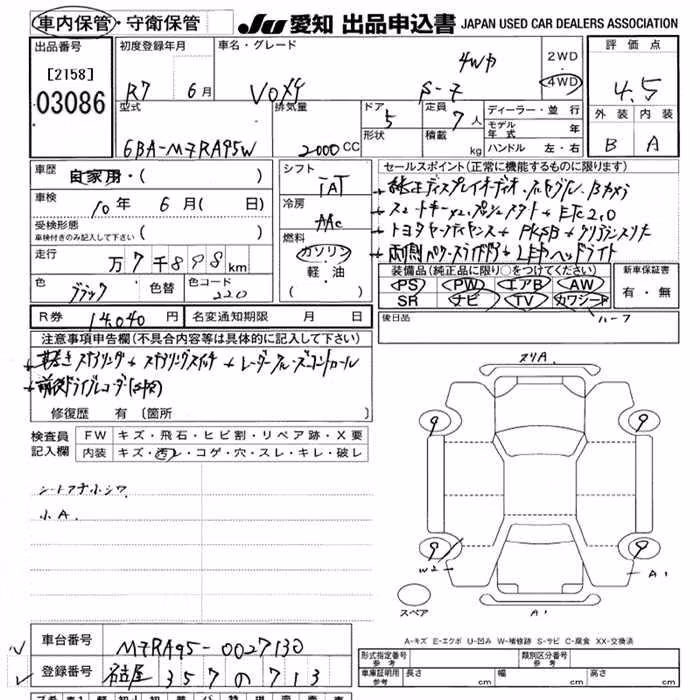 車内保管・守衛保管 JU 愛知 出品申込書 JAPAN USED CAR DEALERS ASSOCIATION
出品番号 初度登録年月 車名・グレード 4WD 2WD 評価点
[2158] R7 6月 VOXY S-Z 4WD 4.5
03086
型式 排気量 ドア 5 定員 7人 ディーラー・並行 外装 内装
6BA-MZRA95W 2000CC 形状 積載 kg モデル年式 年 B A
ハンドル 左・右
車歴 自家用・( ) シフト セールスポイント(正常に機能するものに限ります)
車検 10年 6月( 日) IAT 純正ディスプレイオーディオ・フルセグ/Bカメラ
受検形態 冷房 スマートキーx2・プッシュスタート ETC2.0
車検付きのみ記入して下さい ( ) AAC トヨタセーフティセンス PKSB クリアランスソナー
走行 万7千898km 燃料 両側パワースライドドア LEDヘッドライト
ガソリン 装備品(純正品に限り○をつけてください) 新車保証書
色 ブラック 色替 色コード 220 軽・油 PS PW エアB AW 有・無
( ) SR ナビ TV カワシート
R券 14,040円 名変通知期限 月 日 後日品 ハーフ
注意事項申告欄(不具合内容等は具体的に記入して下さい)
革巻きステアリング ステアリングスイッチ レーダークルーズコントロール
前後ドライブレコーダー
修復歴 有(箇所 )
検査員 FW キズ・飛石・ヒビ割・リペア跡・X要
記入欄 内装 キズ・汚レ・コゲ・穴・スレ・キレ・破レ
シートアナ小シワ
小A.
スリA
9 9
9 9
W2 A1
スペア A1
A-キズ E-エクボ U-凹み W-補修跡 S-サビ C-腐食 XX-交換済
車台番号 MZRA95-0027130
登録番号 名古屋 357 の 713
形式指定番号 参考 類別区分番号 参考
車庫証明用 参考 長さ cm 幅 cm 高さ cm